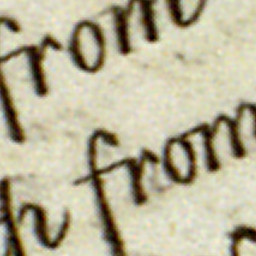 from
from